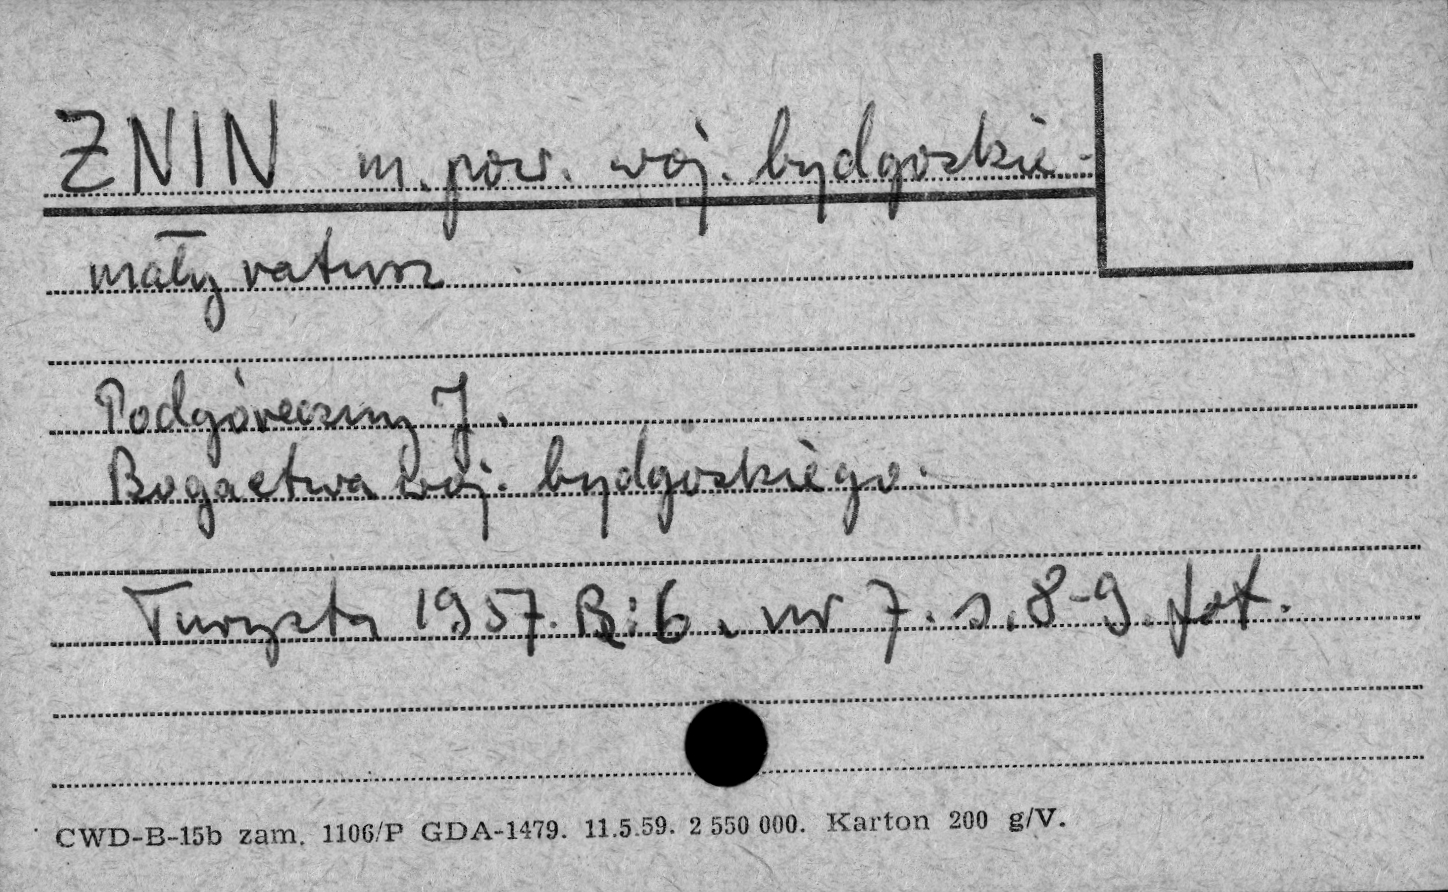 ŻNIN m. pow. woj. bydgoskie-
mały ratusz
Podgóreczny J.
Bogactwa woj. bydgoskiego.
Turysta 1957. R: 6. nr 7. s. 8-9. fot.
CWD-B-15b zam. 1106/P GDA-1479. 11.5.59. 2 550 000. Karton 200 g/V.